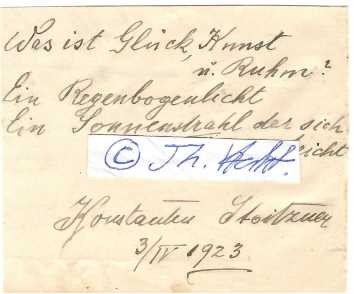 Was ist Glück, Kunst
u. Ruhm?
Ein Regenbogenlicht
Ein Sonnenstrahl der sich
icht
© Th.
Konstantin Stoitzner
3/IV 1923